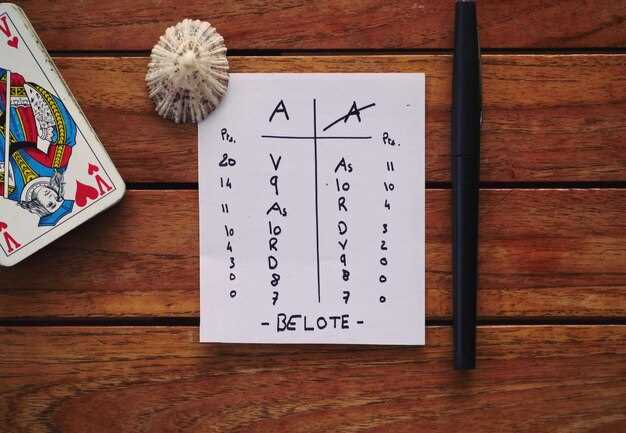 V
V
V
A A
Pts. Pts.
20 V As 11
14 9 10 10
11 As R 4
10 10 D 3
4 R V 2
3 D 9 0
0 8 8 0
0 7 7 0
- BELOTE -